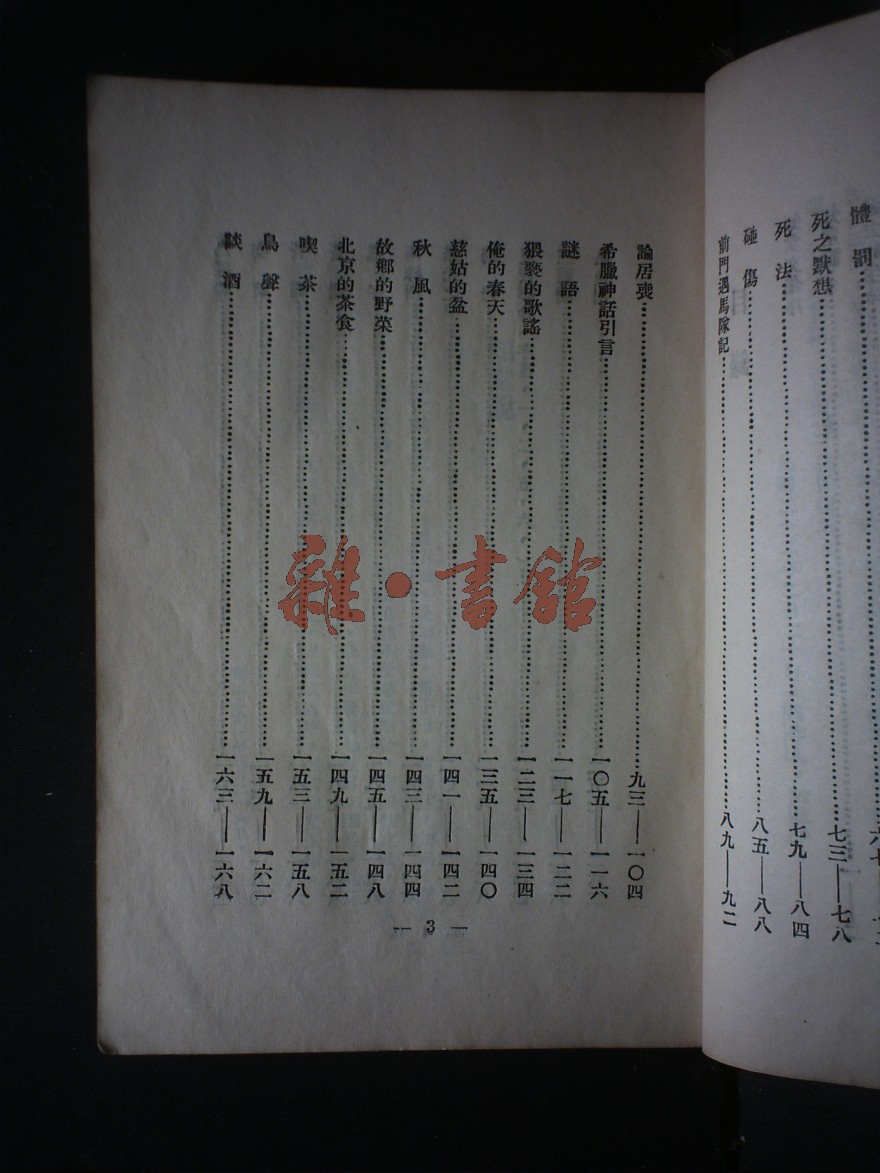 體罰
死之默想……七三——七八
死法……七九——八四
碰傷……八五——八八
前門遇馬隊記……八九——九二
論居喪……九三——一〇四
希臘神話引言……一〇五——一一六
謎語……一一七——一二二
猥褻的歌謠……一二三——一三四
俺的春天……一三五——一四〇
慈姑的盆……一四一——一四二
秋風……一四三——一四四
故鄉的野菜……一四五——一四八
北京的茶食……一四九——一五二
喫茶……一五三——一五八
鳥聲……一五九——一六二
談酒……一六三——一六八
— 3 —
雜·書館